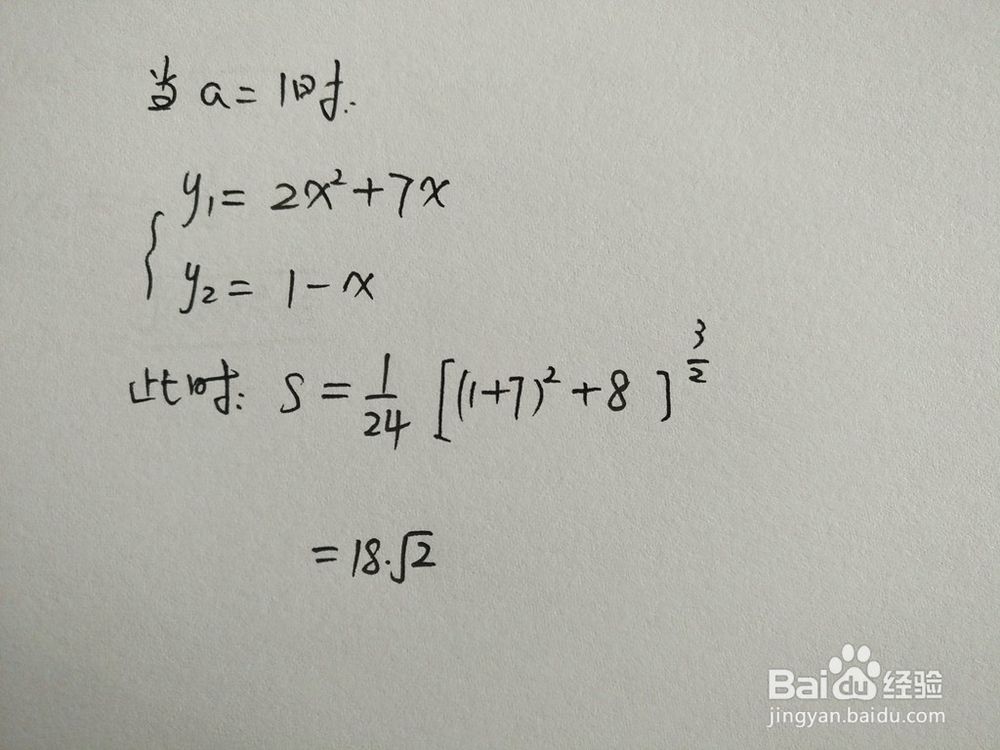 当 a = 1时.
y₁ = 2x² + 7x
y₂ = 1 - x
此时: S = 1/24 [(1+7)² + 8]^(3/2)
= 18·√2
Baidu 经验
jingyan.baidu.com